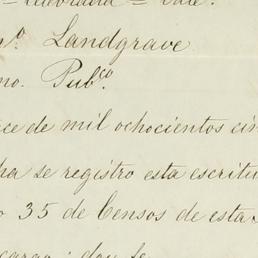 = Vale.
Landgrave
no. Pubco.
ce de mil ochocientos cin
ha se registro esta escritu
o 35 de Censos de esta
cargo: doy fe